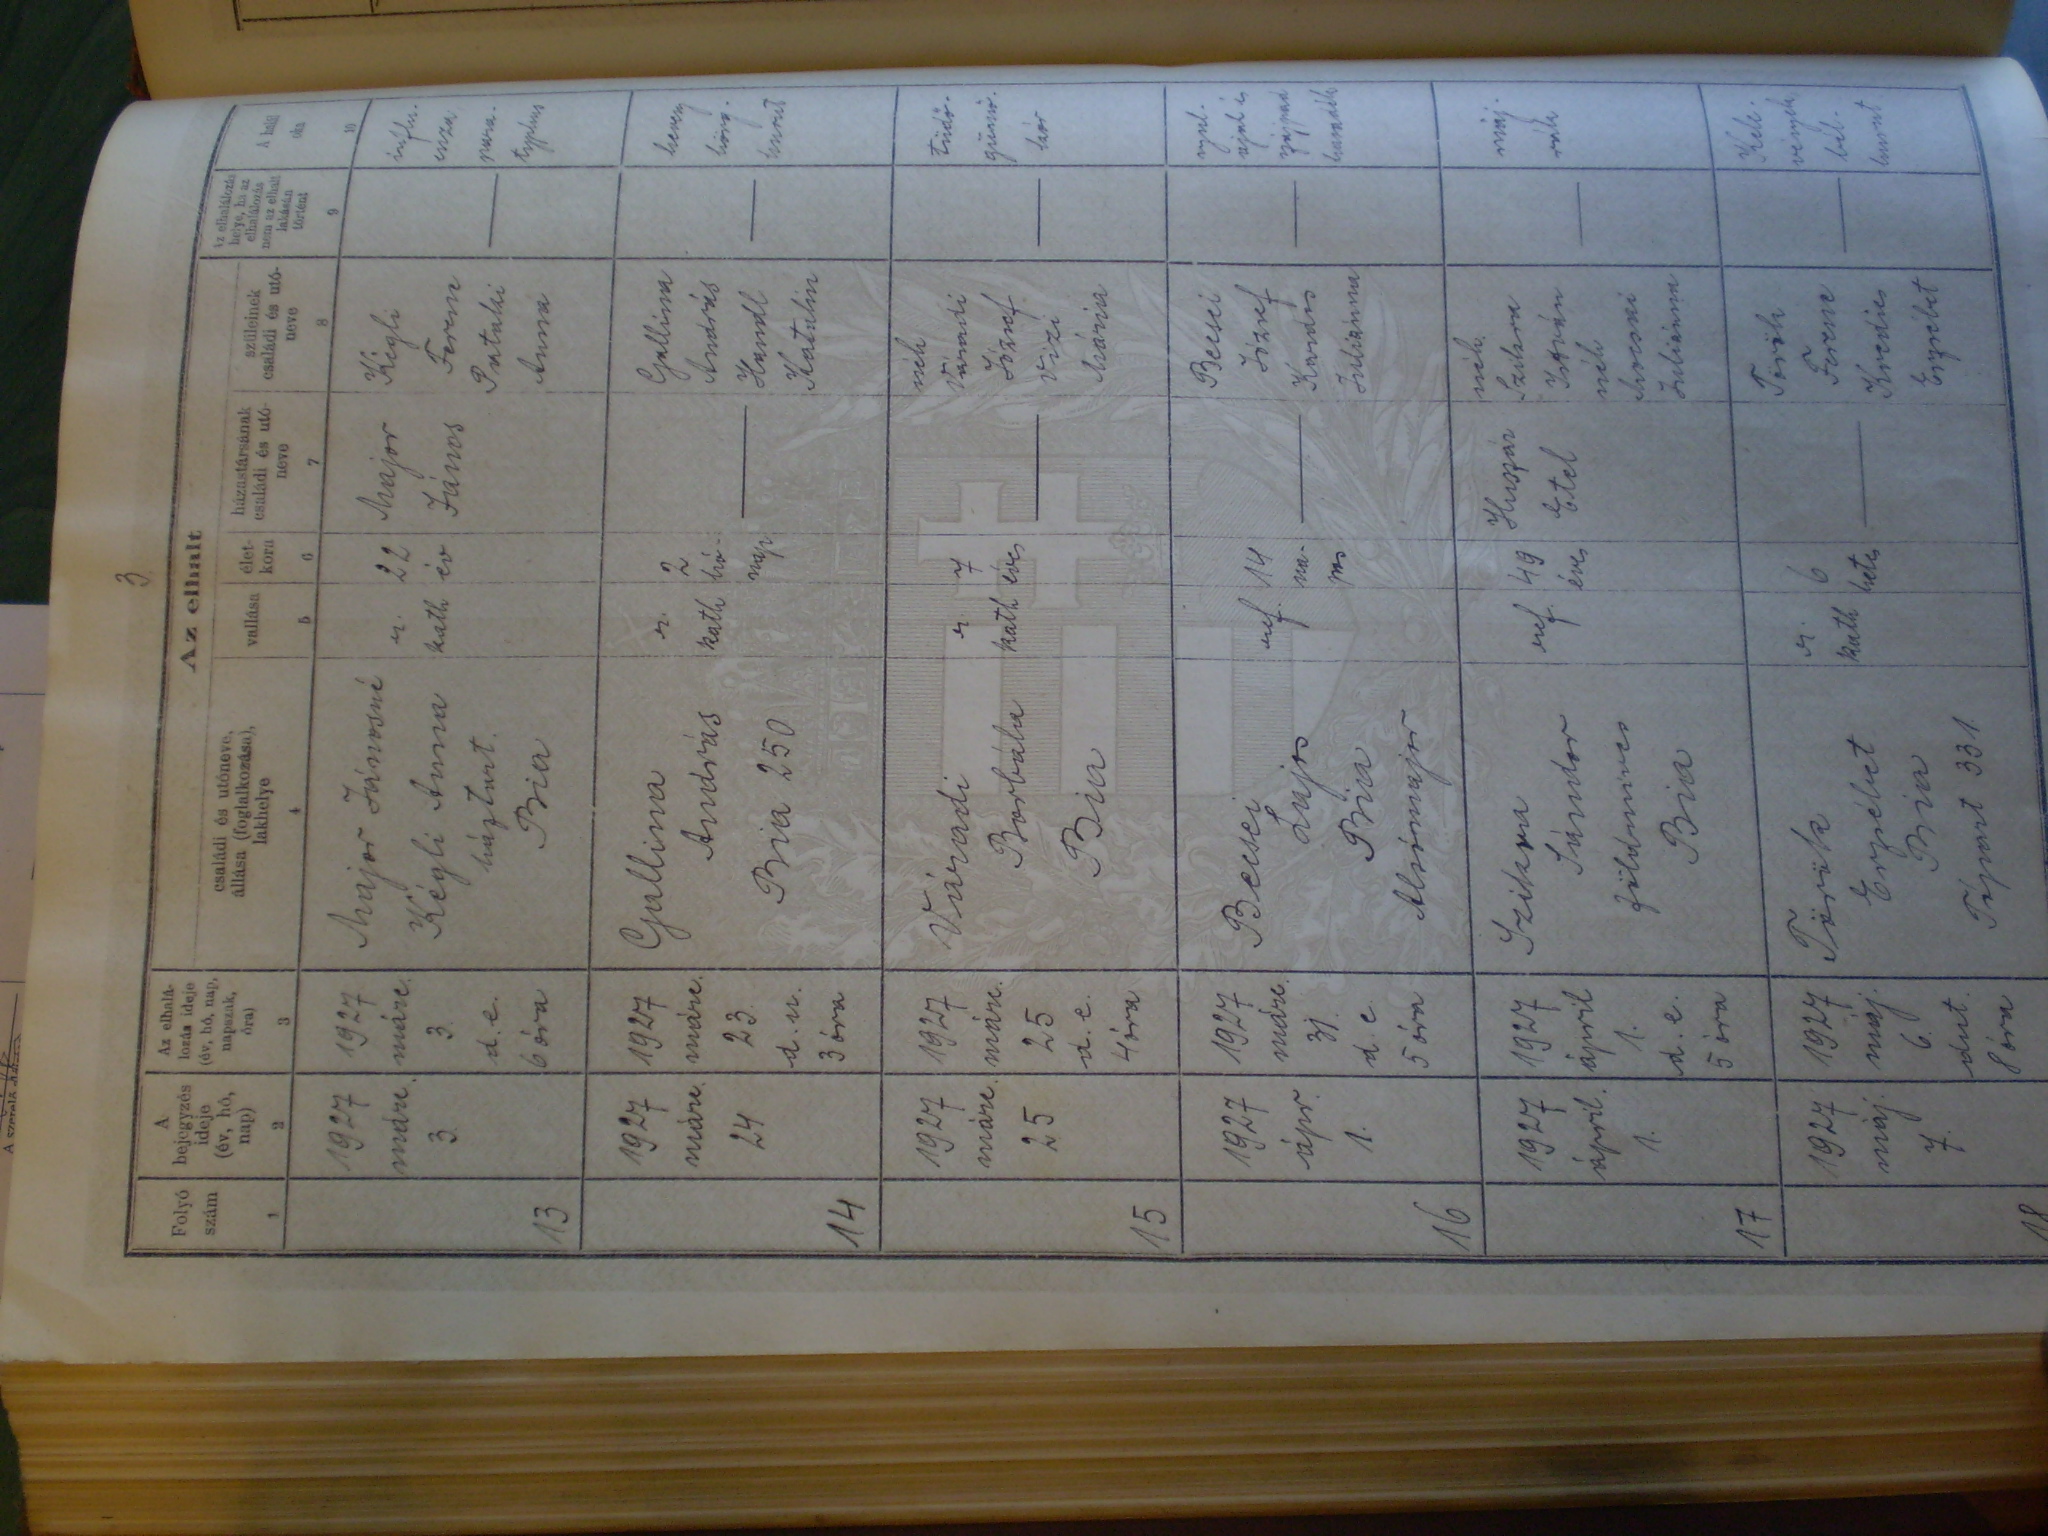 3
Az elhalt
Folyó
szám
1
A
bejegyzés
ideje
(év, hó,
nap)
2
Az elhalá-
lozás ideje
(év, hó, nap,
napszak,
óra)
3
családi és utóneve,
állása (foglalkozása),
lakhelye
4
vallása
5
élet-
kora
6
házastársának
családi és utó-
neve
7
szüleinek
családi és utó-
neve
8
Az elhalálozás
helye, ha az
elhalálozás
nem az elhalt
lakásán
történt
9
A halál
oka
10
13
1927
márc.
3.
1927
márc.
3.
d. e.
6 óra
Major Jánosné
Kégli Anna
háztart.
Bia
r.
kath
22
év
Major
János
Kégli
Ferenc
Pataki
Anna
influ-
enza,
para-
typhus
14
1927
márc.
24
1927
márc.
23.
d. u.
3 óra
Gallina
András
Bia 250
r.
kath
2
hó-
nap
Gallina
András
Handl
Katalin
heveny
hörg-
hurut
15
1927
márc.
25
1927
márc.
25
d. e.
4 óra
Váradi
Borbála
Bia
r.
kath
7
éves
néh
Váradi
József
Vizi
Mária
tüdő-
gümő-
kór
16
1927
ápr.
1.
1927
márc.
31.
d. e.
5 óra
Becsei
Lajos
Bia
Alsómajor
ref.
14
na-
pos
Becsei
József
Kardos
Juliánna
17
1927
április.
1.
1927
április
1.
d. e.
5 óra
Sándor
földmíves
Bia
ref
49
éves
Huszár
Etel
néh.
István
néh
Juliánna
máj-
rák
18
1927
máj.
7.
1927
máj.
6.
dut.
8 óra
Török
Erzsébet
Bia
331
r.
kath
6
hetes
Török
Ferenc
Erzsébet
vényk.
bél-
hurut